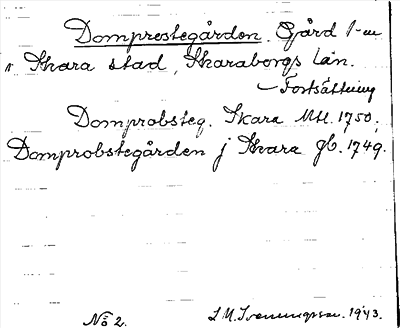 Domprestegården. Gård 1-m
i Skara stad, Skaraborgs län.
Fortsättning
Domprobsteg. Skara Mtl. 1750;
Domprobstegården j Skara gb. 1749.
No 2. 1943.